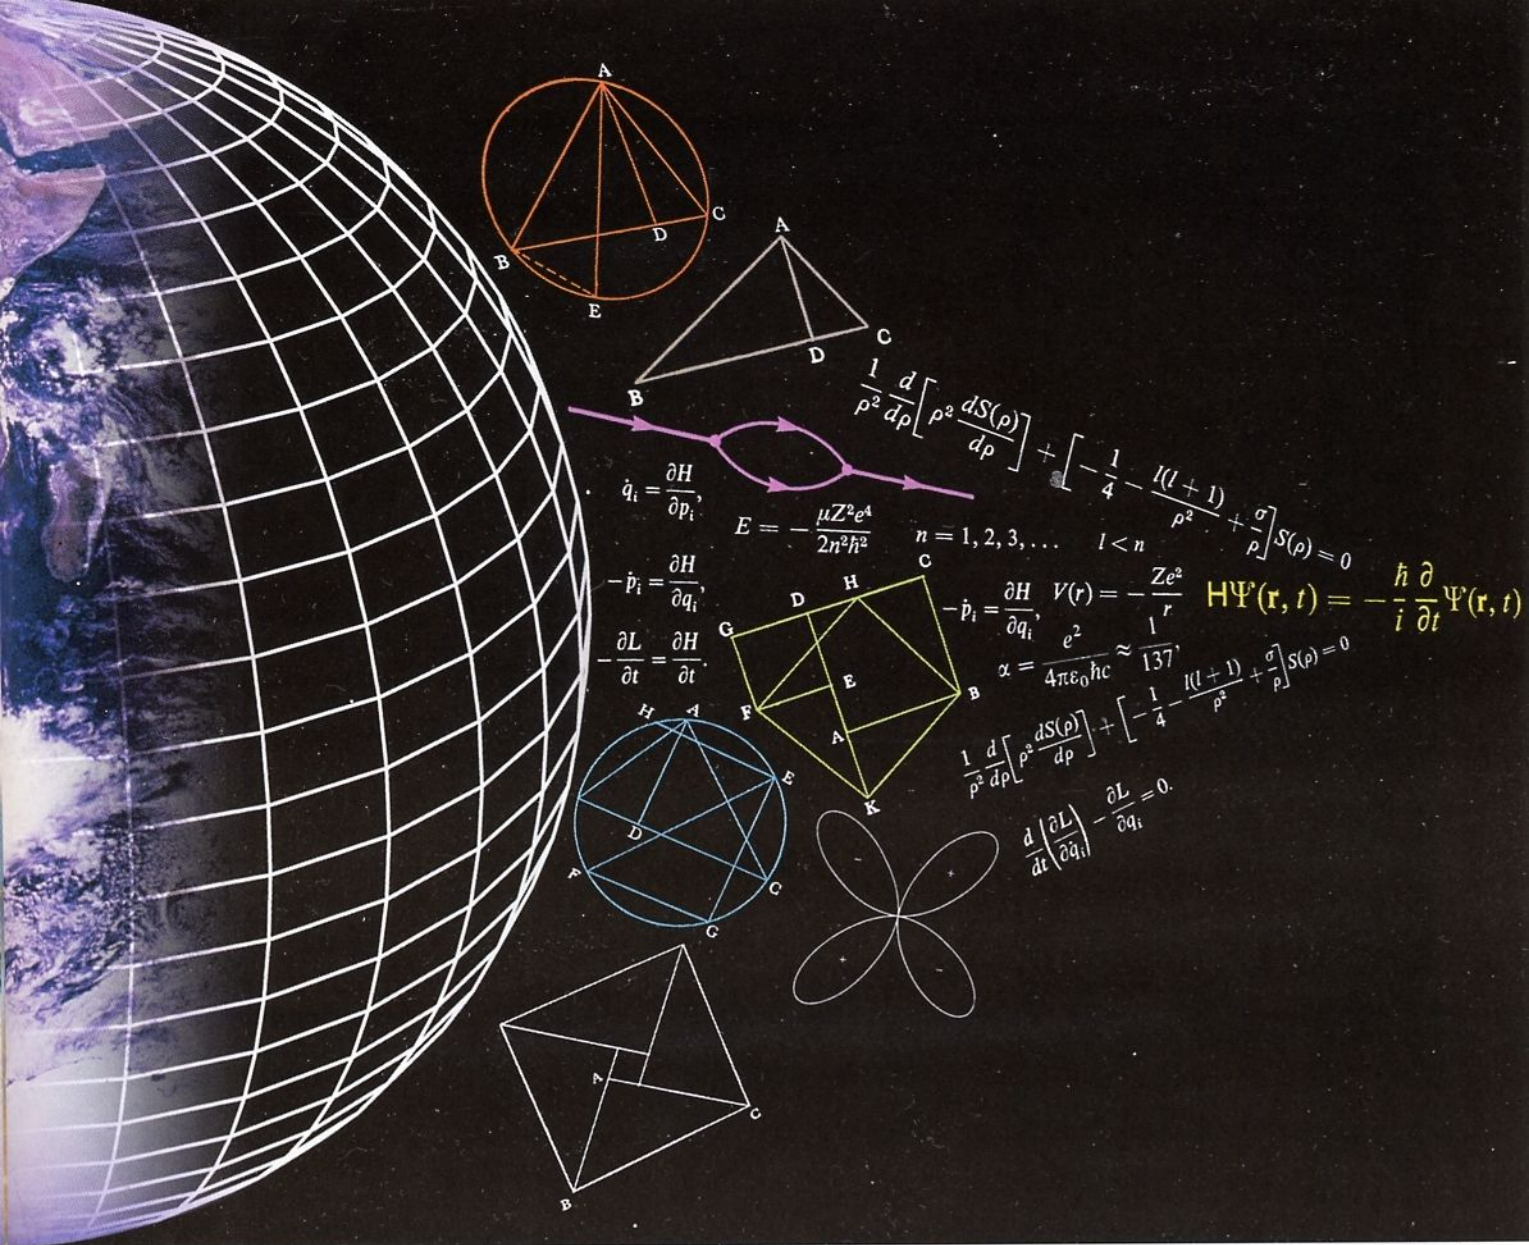 A
B
D
C
E
A
B
D
C
1/ρ² d/dρ[ρ² dS(ρ)/dρ] + [−1/4 − l(l + 1)/ρ² + σ/ρ]S(ρ) = 0
q̇ᵢ = ∂H/∂pᵢ,
E = −μZ²e⁴/2n²ħ² n = 1, 2, 3, … l < n
−ṗᵢ = ∂H/∂qᵢ,
−∂L/∂t = ∂H/∂t.
C
H
D
G
E
F
B
A
K
−ṗᵢ = ∂H/∂qᵢ,
V(r) = −Ze²/r
HΨ(r, t) = −ħ/i ∂/∂t Ψ(r, t)
α = e²/4πε₀ħc ≈ 1/137,
1/ρ² d/dρ[ρ² dS(ρ)/dρ] + [−1/4 − l(l + 1)/ρ² + σ/ρ]S(ρ) = 0
d/dt(∂L/∂q̇ᵢ) − ∂L/∂qᵢ = 0.
H
A
E
D
F
C
G
−
+
+
−
A
C
B